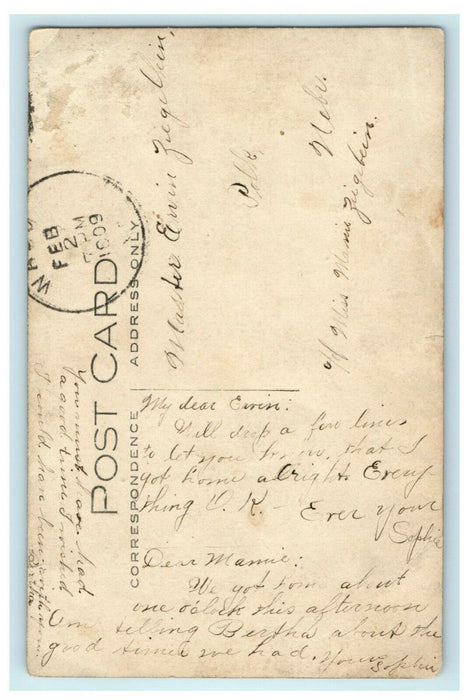 POST CARD
CORRESPONDENCE
ADDRESS ONLY
FEB
2
PM
1909
Master Erwin Ziegelbein,
Polk,
Nebr.
% Miss Mamie Ziegelbein.
My dear Erwin:
Will drop a few lines
to let you know that I
got home alright. Every
thing O.K. - Ever your
Sophie
Dear Mamie:
We got home about
one oclock this afternoon
Am telling Bertha about the
good times we had. Your Sophie
You must have had
a good time I wished
I could have been with you
Bertha